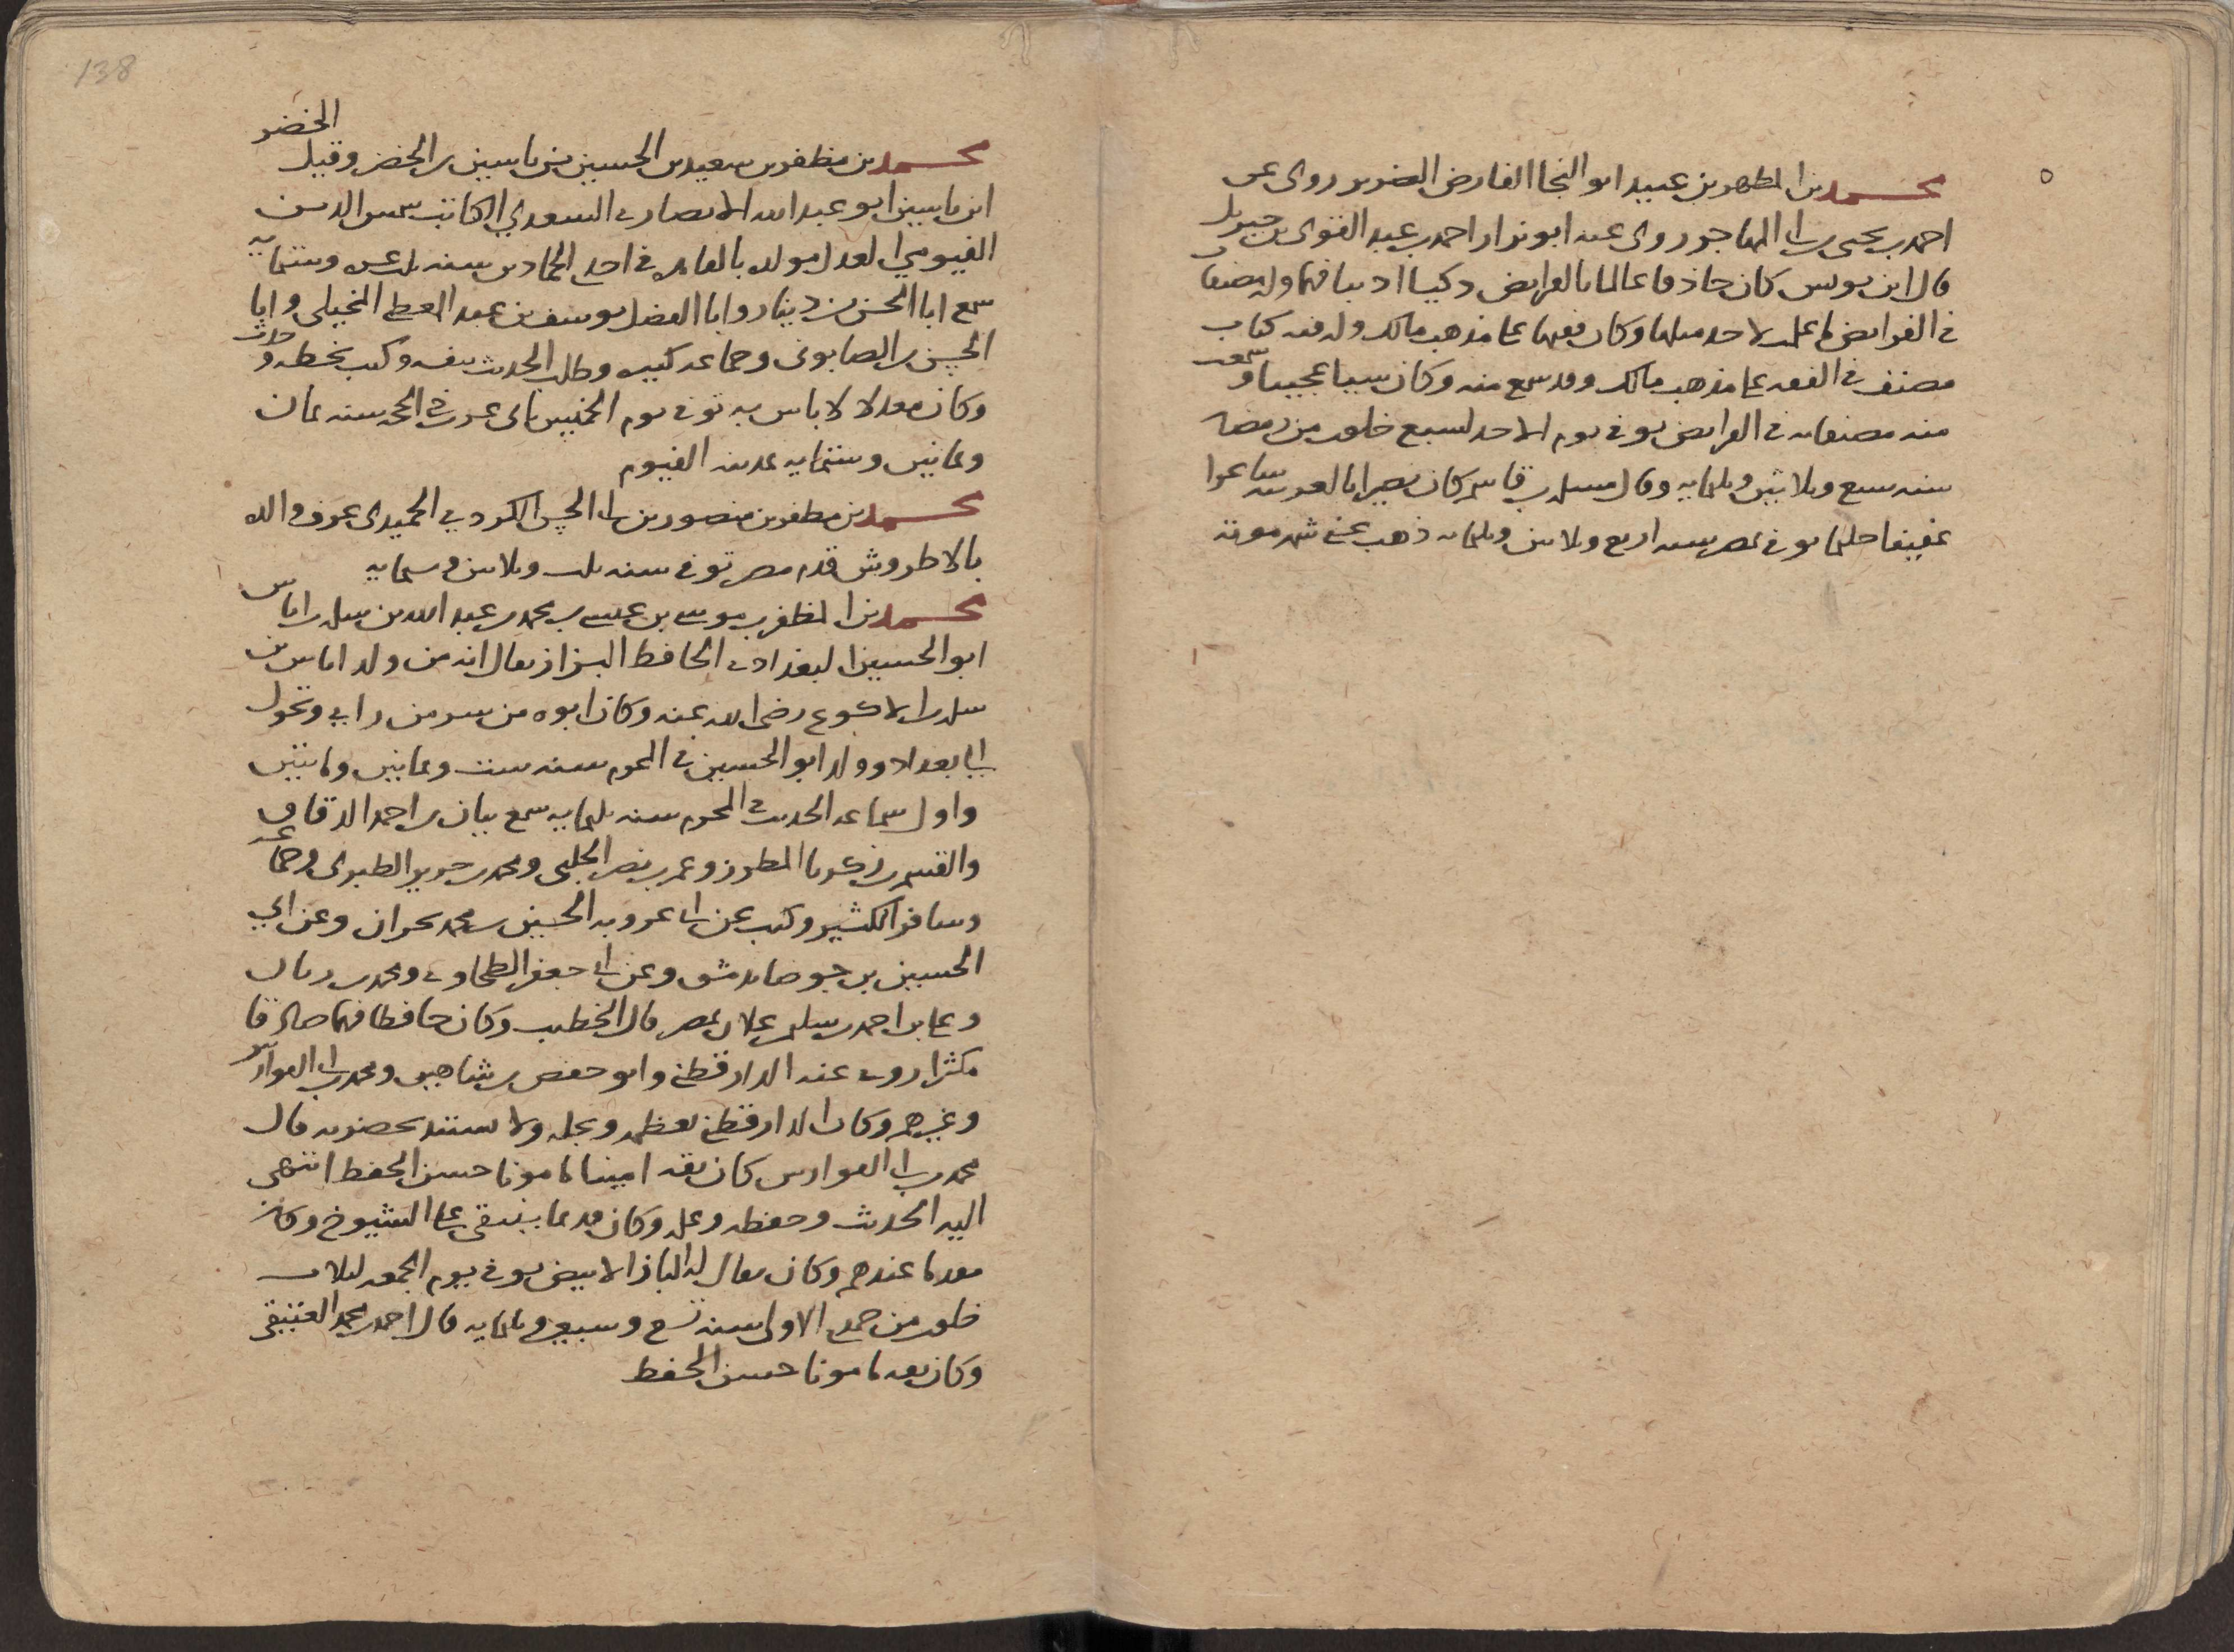 محمد بن المطهر بن عبيد ابو النجا الفارض الضرير روى عن
احمد بن يحيى بن ابي المهاجر روى عنه ابو نزار احمد بن عبد القوى بن جبريل
قال ابن يونس كان حاذقا عالما بالفرايض ذكيا اديبا فهما وله مصنفات
فى الفرايض لا اعلم لاحد مثلها وكان فقيها على مذهب مالك وله فيه كتاب
مصنف فى الفقه على مذهب مالك وقد سمع منه وكان شيئا عجيبا وسمعت
منه مصنفاته فى الفرايض توفى يوم الاحد لسبع خلون من رمضان
سنه سبع وثلاثين وثلثمايه وقال مسلمه بن قاسم كان بصيرا بالعربيه شاعرا
عفيفا حليما توفى بمصر سنه اربع وثلاثين وثلثمايه ذهب عنى شهر موته
138
محمد بن مظفر بن سعيد بن الحسين بن ياسين بن الخضر وقيل الخضر
ابن ياسين ابو عبد الله الانصارى السعدي الكاتب شمس الدين
الفيومي العدل مولده بالقاهره فى احد الجمادين سنه ثلث عشره وستمايه
سمع ابا الحسن بن دينار وابا الفضل يوسف بن عبد المعطى المخيلى وابا
الحسن بن الصابونى وجماعه كثيره وطلب الحديث بنفسه وكتب بخطه وحدث
وكان معدلا لا باس به توفى يوم الخميس ثانى عشر ذى الحجه سنه ثمان
وثمانين وستمايه بمدينه الفيوم
محمد بن مظفر بن منصور بن ابى الحسن الكردي الحميدى عرف والده
بالاطروش قدم مصر توفى سنه ثلث وثلاثين وستمايه
محمد بن المظفر بن موسى بن عيسى بن محمد بن عبد الله بن سلمه بن اياس
ابو الحسين البغدادى الحافظ البزاز يقال انه من ولد اياس بن
سلمه بن الاكوع رضى الله عنه وكان ابوه من سر من راي وتحول
الى بغداد وولد ابو الحسين فى المحرم سنه ست وثمانين ومايتين
واول سماعه الحديث فى المحرم سنه ثلثمايه سمع بيان بن احمد الدقاق
والقسم بن زكريا المطرز وعمر بن نصر الحلبى ومحمد بن جرير الطبرى وجماعه
وسافر الكثير وكتب عن ابى عروبه الحسين بن محمد بحران وعن ابي
الحسين بن جوصا بدمشق وعن ابى جعفر الطحاوى ومحمد بن زبان
وعلى بن احمد بن سليمن علان بمصر قال الخطيب وكان حافظا فهما صادقا
مكثرا روى عنه الدارقطنى وابو حفص بن شاهين ومحمد بن ابى الفوارس
وغيرهم وكان الدارقطنى يعظمه ويجله ولا يستند بحضرته قال
محمد بن ابى الفوارس كان ثقه امينا مامونا حسن الحفظ انتهى
اليه الحديث وحفظه وعلمه وكان قديما ينتقى على الشيوخ وكان
مقدما عندهم وكان يقال له الباز الابيض توفى يوم الجمعه لثلاث
خلون من جمادى الاولى سنه تسع وسبعين وثلثمايه قال احمد بن محمد العتيقى
وكان ثقه مامونا حسن الحفظ